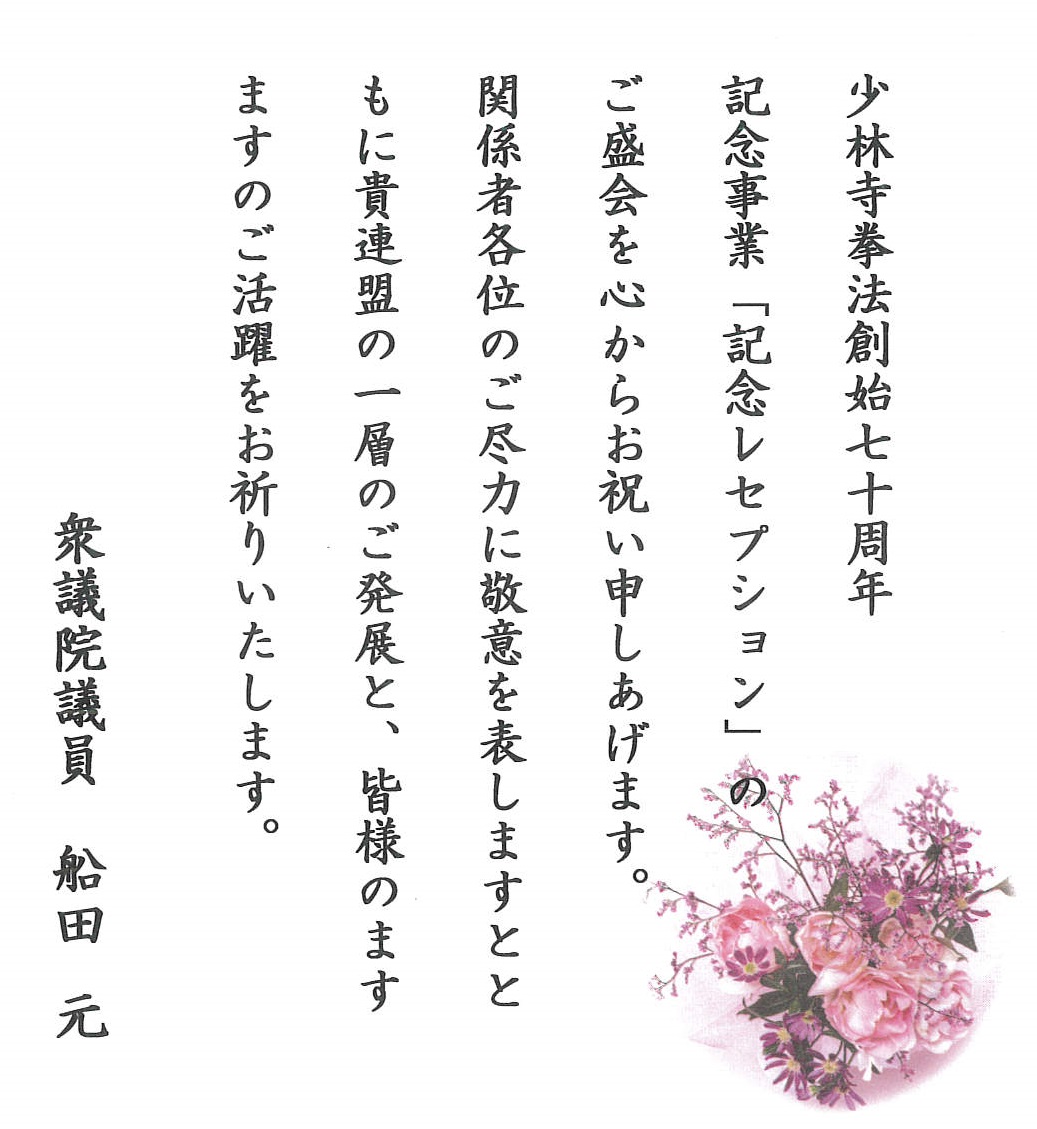 少林寺拳法創始七十周年
記念事業「記念レセプション」の
ご盛会を心からお祝い申しあげます。
関係者各位のご尽力に敬意を表しますとと
もに貴連盟の一層のご発展と、皆様のます
ますのご活躍をお祈りいたします。
衆議院議員　船田　元